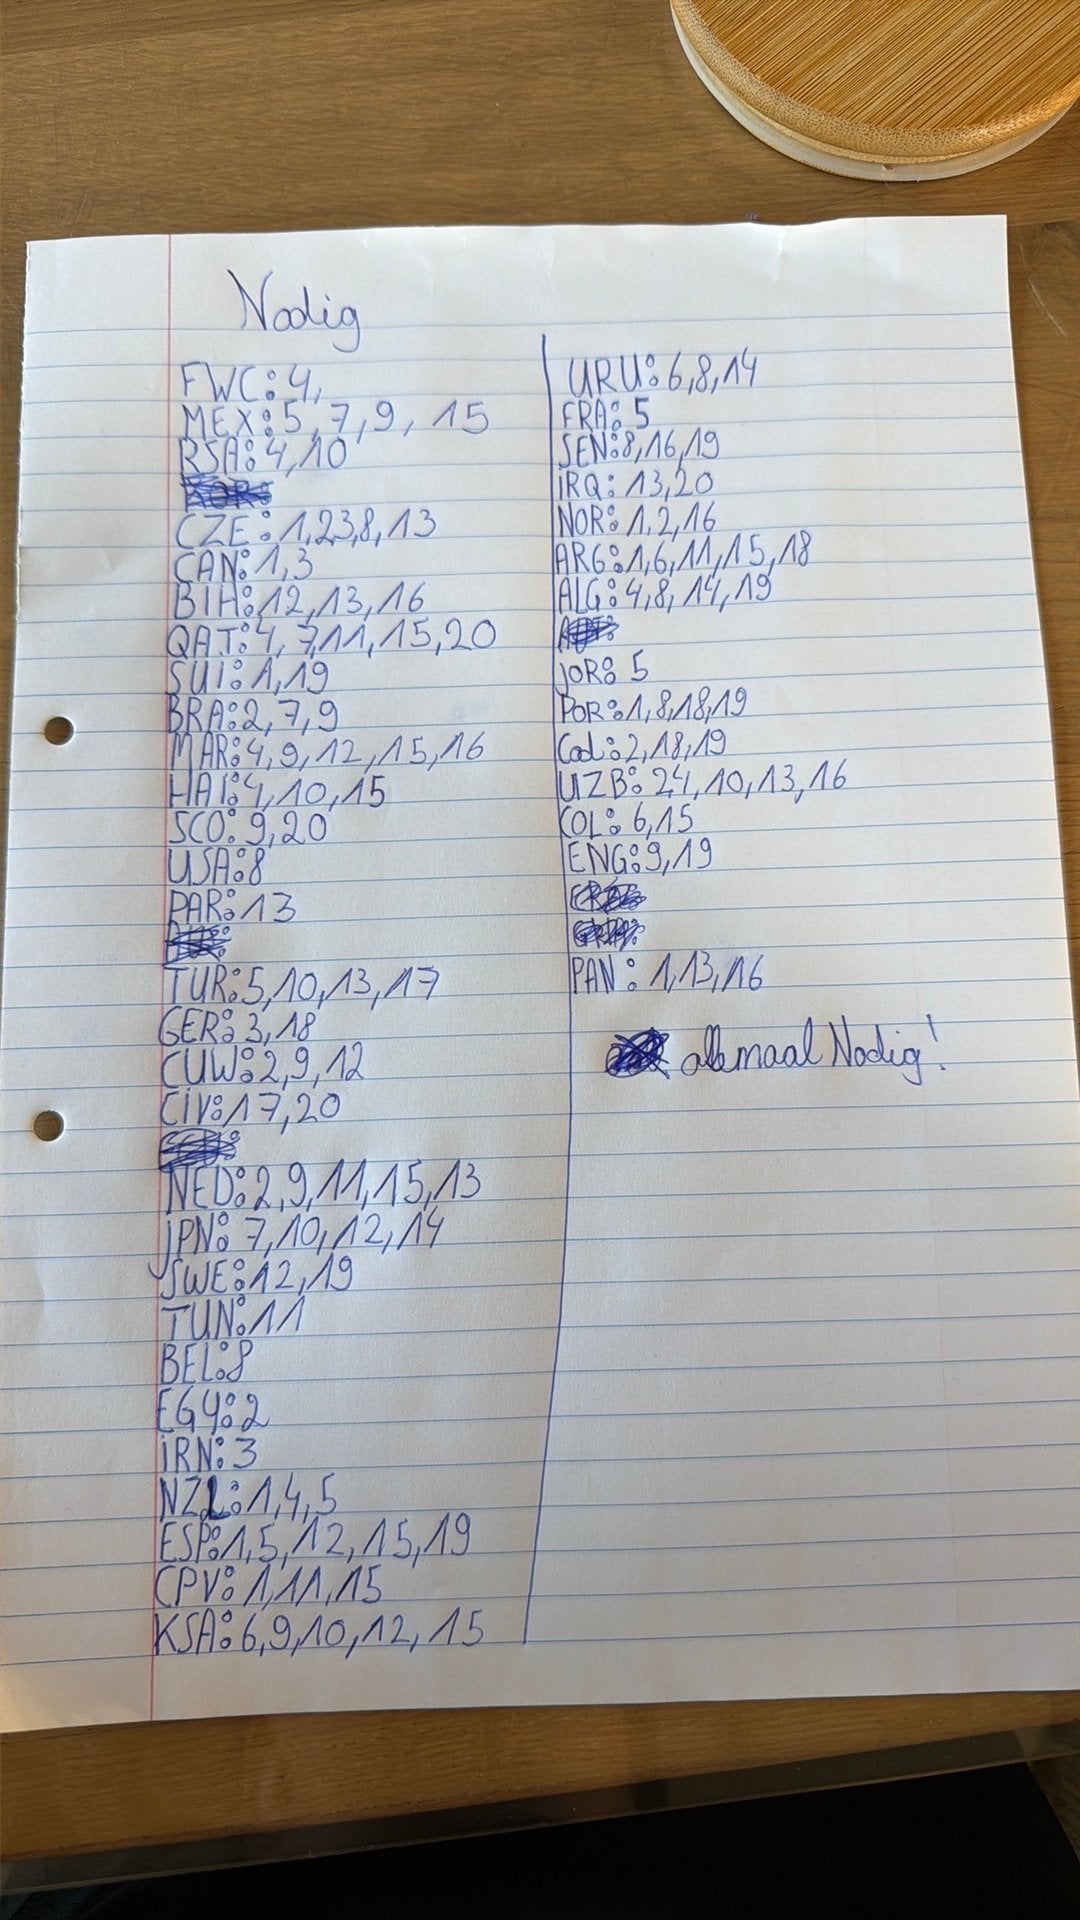 Nodig
FWC: 4,
MEX: 5, 7, 9, 15
RSA: 4, 10
CZE: 1,2,3,8,13
CAN: 1,3
BIH: 12, 13, 16
QAT: 4, 7,11, 15,20
SUI: 1,19
BRA: 2, 7, 9
MAR: 4, 9, 12, 15, 16
HAI: 4, 10, 15
SCO: 9,20
USA: 8
PAR: 13
TUR: 5,10,13,17
GER: 3,18
CUW: 2,9,12
CIV: 17,20
NED: 2,9,11,15,13
JPN: 7,10,12,14
SWE: 12,19
TUN: 11
BEL: 8
EGY: 2
IRN: 3
NZL: 1,4,5
ESP: 1,5,12,15,19
CPV: 1,11,15
KSA: 6,9,10,12,15
URU: 6,8,14
FRA: 5
SEN: 8,16,19
IRQ: 13,20
NOR: 1,2,16
ARG: 1,6,11,15,18
ALG: 4,8,14,19
JOR: 5
POR: 1,8,18,19
Cod: 2,18,19
UZB: 2,4,10,13,16
COL: 6,15
ENG: 9,19
PAN: 1,13,16
allemaal Nodig!